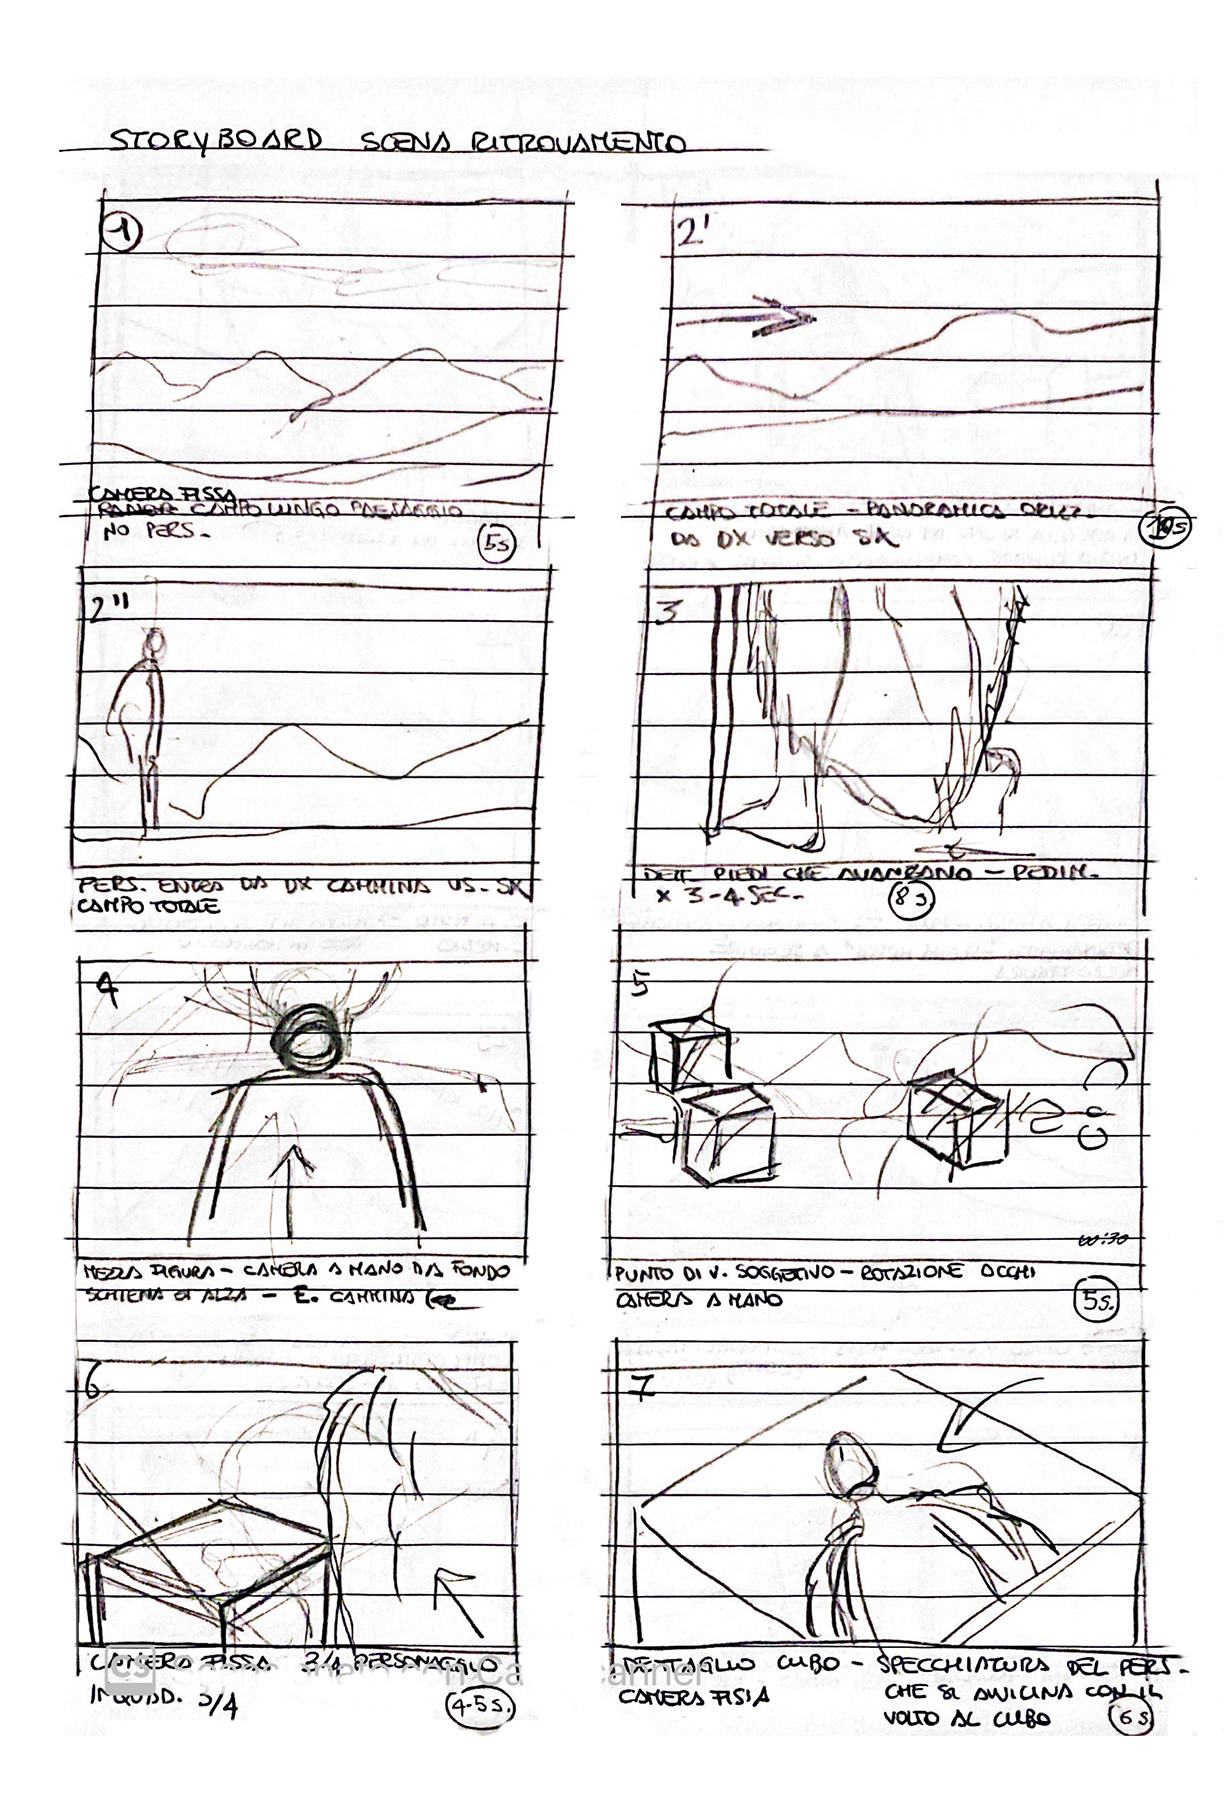 STORYBOARD SCENA RITROVAMENTO
1
CAMERA FISSA
CAMPO LUNGO PAESAGGIO
NO PERS.
5s
2'
CAMPO TOTALE - PANORAMICA ORIZZ.
DA DX VERSO SX
2"
PERS. ENTRA DA DX CAMMINA VS. SX
CAMPO TOTALE
3
DETT. PIEDI CHE AVANZANO - PEDIN.
X 3-4 SEC.
8s
4
MEZZA FIGURA - CAMERA A MANO DA FONDO
SCHIENA SI ALZA - E. CAMMINA
5
00:30
PUNTO DI V. SOGGETIVO - ROTAZIONE OCCHI
CAMERA A MANO
5s.
6
CAMERA FISSA 3/4 PERSONAGGIO
INQUAD. 3/4
4-5s.
7
DETTAGLIO CUBO - SPECCHIATURA DEL PERS.
CAMERA FISSA
CHE SI AVVICINA CON IL
VOLTO AL CUBO
6s
CS